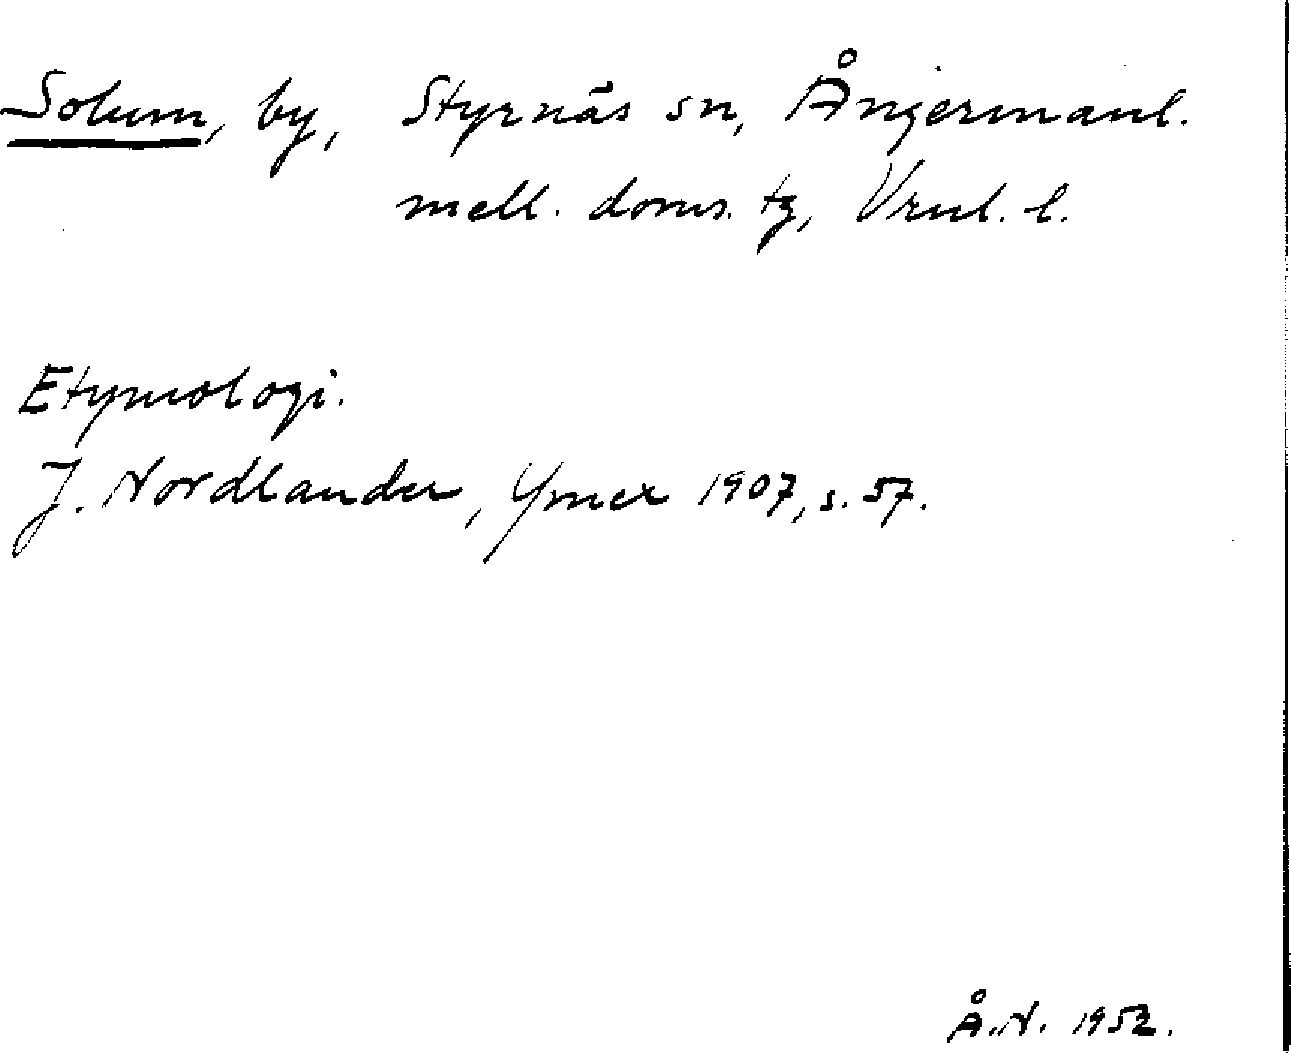 Solum, by, Styrnäs sn, Ångermanl.
mell. doms. tg, Vrnl. l.
Etymologi.
J. Nordlander, Ymer 1907, s. 57.
Å.N. 1952.